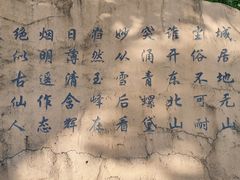 城居地无山
尘俗不可耐
谁开东北山
涌青螺黛
妙从雪后看
然玉峰在
日薄清含辉
烟明遥作态
绝似古仙人